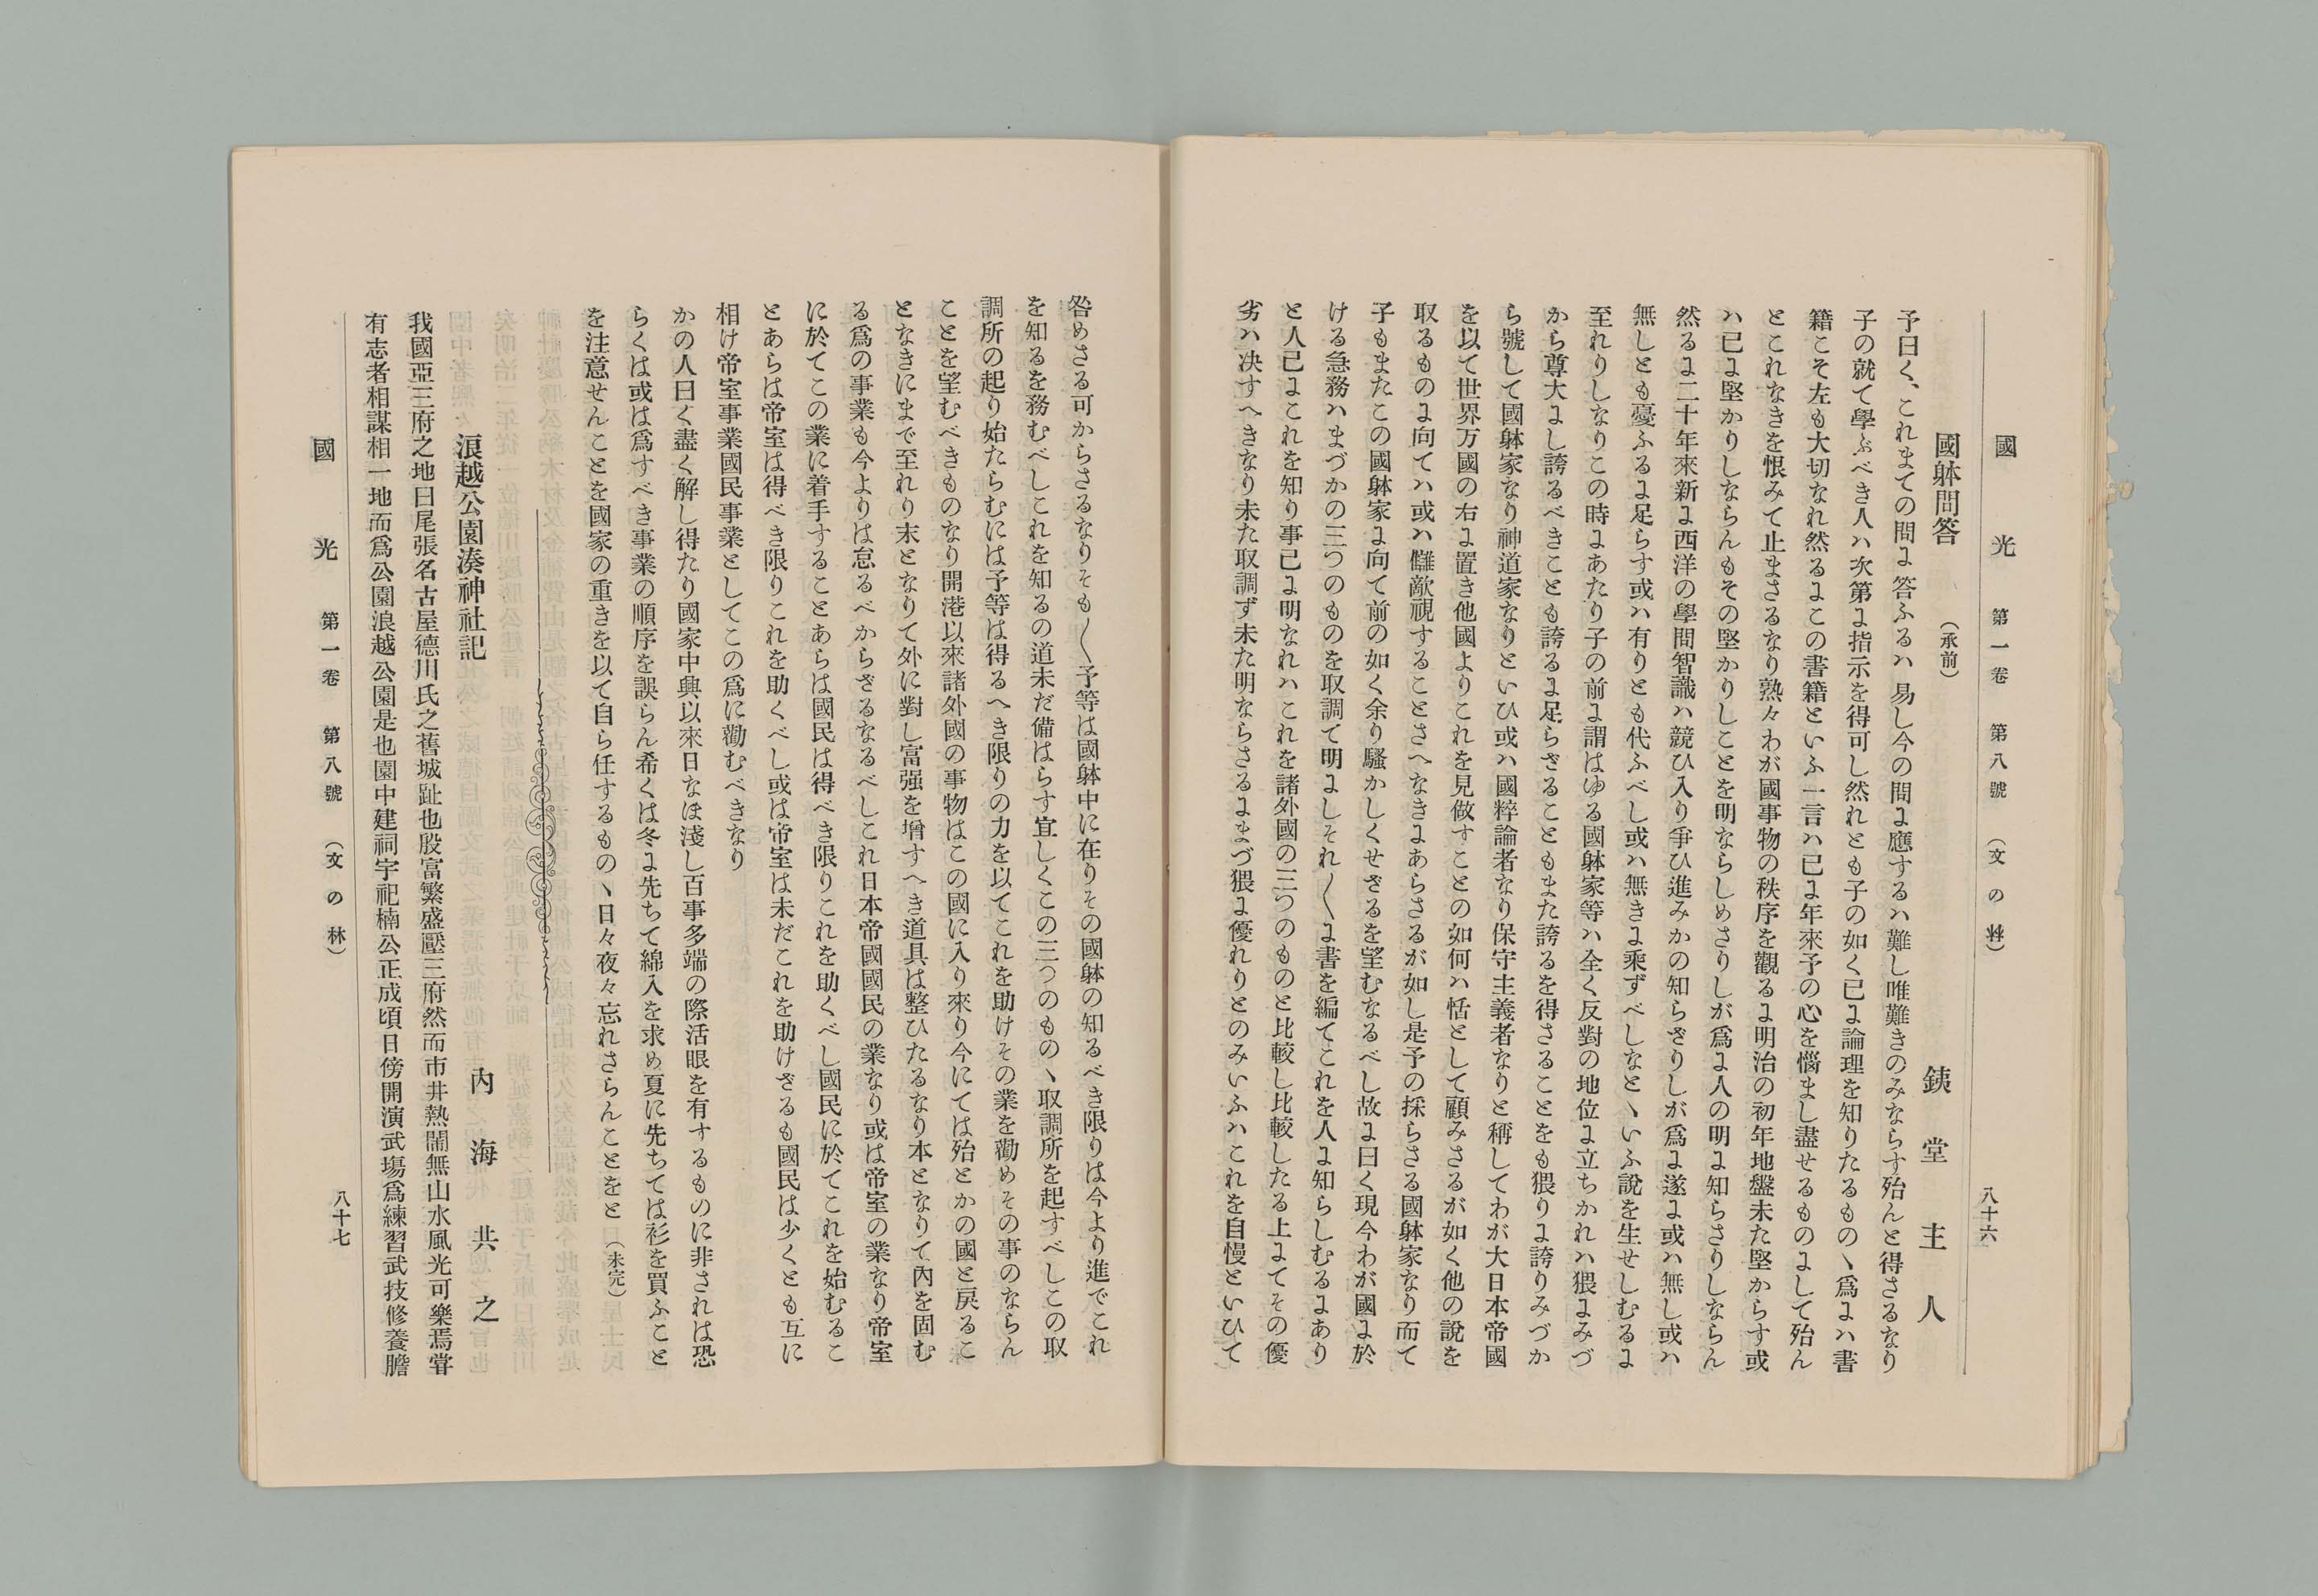 國光 第一卷 第八號 (文の林) 八十六
國躰問答 (承前) 銕堂主人
予曰く、これまての問よ答ふるハ易し今の問よ應するハ難し唯難きのみならす殆んと得さるなり
子の就て學ぶべき人ハ次第よ指示を得可し然れとも子の如く已よ論理を知りたるものヽ爲よハ書
籍こそ左も大切なれ然るよこの書籍といふ一言ハ已よ年來予の心を惱まし盡せるものよして殆ん
とこれなきを恨みて止まさるなり熟々わが國事物の秩序を觀るよ明治の初年地盤未た堅からす或
ハ已よ堅かりしならんもその堅かりしことを明ならしめさりしが爲よ人の明よ知らさりしならん
然るよ二十年來新よ西洋の學問智識ハ競ひ入り爭ひ進みかの知らざりしが爲よ遂よ或ハ無し或ハ
無しとも憂ふるよ足らす或ハ有りとも代ふべし或ハ無きよ乘ずべしなとヽいふ說を生せしむるよ
至れりしなりこの時よあたり子の前よ謂はゆる國躰家等ハ全く反對の地位よ立ちかれハ猥よみづ
から尊大よし誇るべきことも誇るよ足らざることもまた誇るを得さることをも猥りよ誇りみづか
ら號して國躰家なり神道家なりといひ或ハ國粹論者なり保守主義者なりと稱してわが大日本帝國
を以て世界万國の右よ置き他國よりこれを見做すことの如何ハ恬として顧みさるが如く他の說を
取るものよ向てハ或ハ讎敵視することさへなきよあらさるが如し是予の採らさる國躰家なり而て
子もまたこの國躰家よ向て前の如く余り騷かしくせざるを望むなるべし故よ曰く現今わが國よ於
ける急務ハまづかの三つのものを取調て明よしそれ〱よ書を編てこれを人よ知らしむるよあり
と人已よこれを知り事已よ明なれハこれを諸外國の三つのものと比較し比較したる上よてその優
劣ハ决すへきなり未た取調ず未た明ならさるよまづ猥よ優れりとのみいふハこれを自慢といひて
咎めさる可からさるなりそも〱予等は國躰中に在りその國躰の知るべき限りは今より進でこれ
を知るを務むべしこれを知るの道未だ備はらす宜しくこの三つのものヽ取調所を起すべしこの取
調所の起り始たらむには予等は得るへき限りの力を以てこれを助けその業を勸めその事のならん
ことを望むべきものなり開港以來諸外國の事物はこの國に入り來り今にては殆とかの國と戾るこ
となきにまで至れり末となりて外に對し富强を增すへき道具は整ひたるなり本となりて內を固む
る爲の事業も今よりは怠るべからざるなるべしこれ日本帝國國民の業なり或は帝室の業なり帝室
に於てこの業に着手することあらは國民は得べき限りこれを助くべし國民に於てこれを始むるこ
とあらは帝室は得べき限りこれを助くべし或は帝室は未だこれを助けざるも國民は少くとも互に
相け帝室事業國民事業としてこの爲に勸むべきなり
かの人曰く盡く解し得たり國家中興以來日なほ淺し百事多端の際活眼を有するものに非されは恐
らくは或は爲すべき事業の順序を誤らん希くは冬よ先ちて綿入を求め夏に先ちては衫を買ふこと
を注意せんことを國家の重きを以て自ら任するものヽ日々夜々忘れさらんことをと (未完)
浪越公園湊神社記 內海共之
我國亞三府之地曰尾張名古屋德川氏之舊城趾也殷富繁盛壓三府然而市井熱鬧無山水風光可樂焉甞
有志者相謀相一地而爲公園浪越公園是也園中建祠宇祀楠公正成頃日傍開演武塲爲練習武技修養膽
國光 第一卷 第八號 (文の林) 八十七